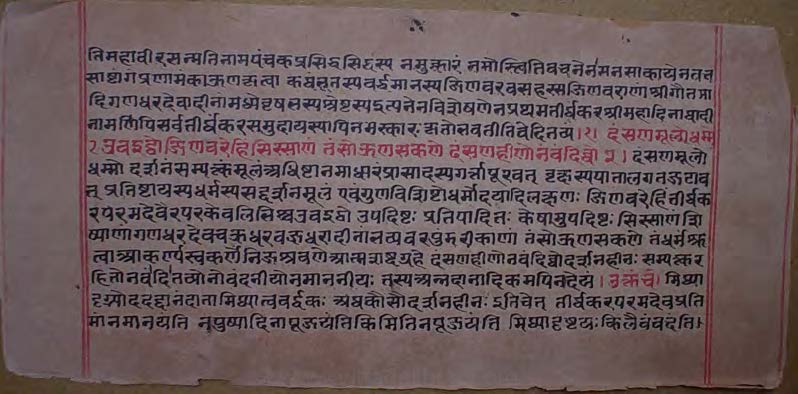 तिमहावीरसन्मतिनामपंचकप्रसिद्धसिद्धस्य नमुक्कारं नमोस्त्वितिवचनेनमनसाकायेनतत्
साष्टांगप्रणामंकाऊणकृत्वा कथंभूतस्यवर्द्धमानस्यजिणवरवसहस्सजिणवराणांश्रीगौतमा
दिगणधरदेवादीनांमध्येवृषभस्यश्रेष्टस्यइत्यनेनविशेषणेनप्रथमतीर्थंकरश्रीमदादिनाथादी
नामपिसर्वतीर्थंकरसमुदायस्यापिनमस्कारः कृतोभवतीतिवेदितव्यं।१। दंसणमूलोधम्मो
उवइट्ठोजिणवरेहिंसिस्साणं तंसोऊणसकण्णे दंसणहीणोनवंदिव्वो २। दंसणमूलो
धम्मो दर्शनंसम्यक्त्वंमूलंअधिष्टानमाधारंप्रासादस्यगर्त्तापूरवत् वृक्षस्यपातालगतजटाव
त् प्रतिष्टायस्यधर्मस्यसदर्शनमूलं एवंगुणविशिष्टोधर्मोदयादिलक्षणः जिणवरेहिंतीर्थंक
रपरमदेवैरपरकेवलिभिश्चउवइट्ठो उपदिष्टः प्रतिपादितः केषामुपदिष्टः सिस्साणंशि
ष्याणांगणधरदेवचक्रधरवज्रधरादीनांभव्यवरपुंडरीकाणां तंसोऊणसकण्णे तंधर्मंश्रु
त्वाआकर्ण्यस्वकर्णेनिजश्रवणे दंसणहीणोनवंदिव्वोदर्शनहीनः सम्यक्त्वर
हितोनवंदितव्योनोवंदनीयोनमाननीयः तस्यअन्नदानादिकमपिनदेयं। उक्तंच। मिथ्या
दृग्भ्योददद्दानंदातामिथ्यात्ववर्द्धकः अथकोसौदर्शनहीनः इतिचेत् तीर्थंकरपरमदेवप्रति
मांनमानयंति नपुष्पादिनापूजयंतिकिमितिनपूजयंति मिथ्यादृष्टयः किलैवंवदंति।